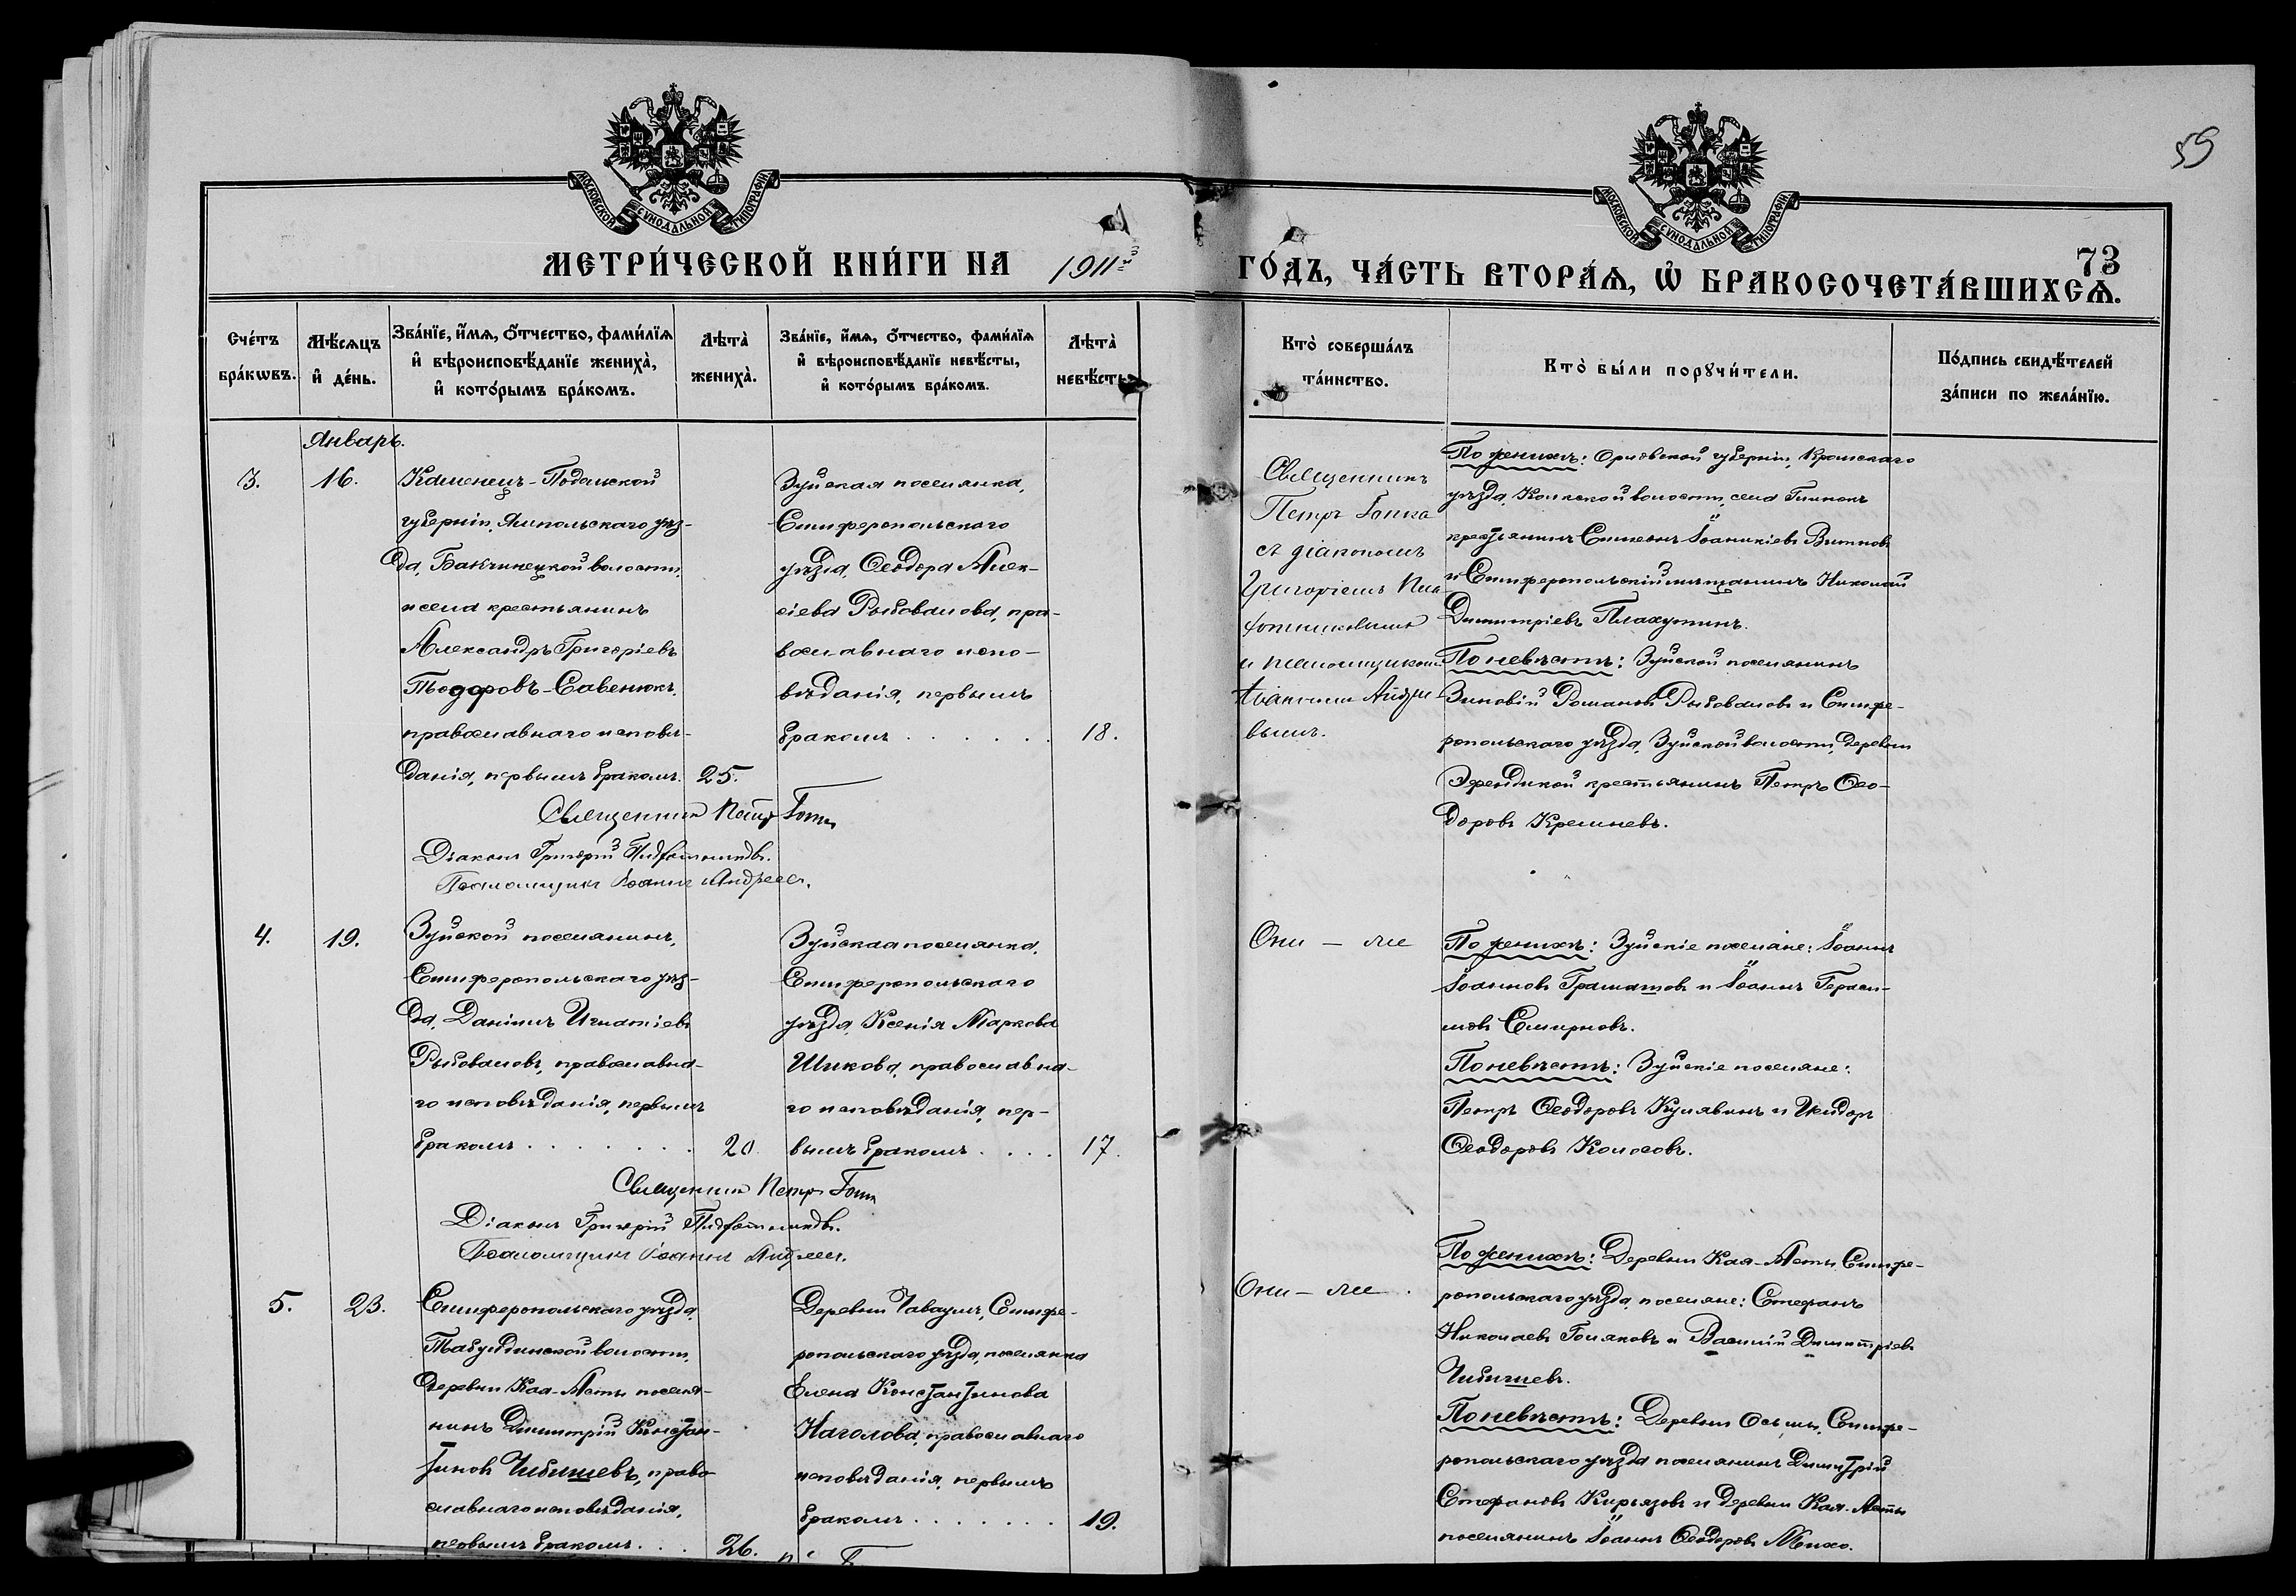 59
МОСКОВСКОЙ СѴНОДАЛЬНОЙ ТИПОГРАФІИ
МОСКОВСКОЙ СѴНОДАЛЬНОЙ ТИПОГРАФІИ
73
МЕТРИ́ЧЕСКОЙ КНИ́ГИ НА 1911й
ГО́ДЪ, ЧА́СТЬ ВТОРА́Ѧ, Ѡ҆ БРАКОСОЧЕТА́ВШИХСѦ.
Сче́тъ бра́кѡвъ.
Мѣ́сѧцъ и҆ де́нь.
Зва́нїе, и҆́мѧ, ѻ҆́тчество, фами́лїѧ
и҆ вѣроисповѣ́данїе жениха̀,
и҆ кото́рымъ бра́комъ.
Лѣта̀ жениха̀.
Зва́нїе, и҆́мѧ, ѻ҆́тчество, фами́лїѧ
и҆ вѣроисповѣ́данїе невѣ́сты,
и҆ кото́рымъ бра́комъ.
Лѣта̀ невѣ́сты
Кто̀ соверша́лъ
та́инство.
Кто̀ бы́ли порꙋчи́тели.
По́дпись свидѣ́телей
за́писи по жела́нїю.
Январь.
3.
16.
Каменецъ-Подольской
губерніи, Ямпольскаго уѣз-
да, Бакчинецкой волости,
и села крестьянинъ
Александръ Григоріевъ
Тьодоровъ-Савенюкъ,
православнаго исповѣ-
данія, первымъ бракомъ.
25.
Зуйская поселянка,
Симферопольскаго
уѣзда, Ѳеодора Алек-
сіева Рыбовалова, пра-
вославнаго испо-
вѣданія, первымъ
бракомъ . . . . . .
18.
Священникъ
Петръ Гопка
съ діакономъ
Григоріемъ
и псаломщикомъ
Іоанномъ Андре
вымъ.
По женихѣ: Орловской губерніи, Кромскаго
уѣзда, волости, села
крестьянинъ Симеонъ Іоаникіевъ
и Симферопольскій мѣщанинъ Николай
Димитріевъ Плахутинъ.
По невѣстѣ: Зуйской поселянинъ
Зиновій Романовъ Рыбоваловъ и Симфе-
ропольскаго уѣзда, Зуйской волости, деревни
Эфендикой крестьянинъ Петръ Ѳео-
доровъ Кремневъ.
Священникъ Петръ Гопка
Діаконъ Григорій
Псаломщикъ Іоаннъ Андреев.
4.
19.
Зуйской поселянинъ,
Симферопольскаго уѣз-
да, Даніилъ Игнатіевъ
Рыбоваловъ, православна-
го исповѣданія, первымъ
бракомъ . . . . . . .
20.
Зуйская поселянка,
Симферопольскаго
уѣзда, Ксенія Маркова
Шикова, православна-
го исповѣданія, пер-
вымъ бракомъ . . . .
17.
Они — же
По женихѣ: Зуйскіе поселяне: Іоаннъ
Іоанновъ Граматовъ и Іоаннъ Гераси-
мовъ Смирновъ.
По невѣстѣ: Зуйскіе поселяне:
Петръ Ѳеодоровъ Кулявинъ и Исидоръ
Ѳеодоровъ Колосовъ.
Священникъ Петръ Гопка
Діаконъ Григорій
Псаломщикъ Іоаннъ Андреев.
5.
23.
Симферопольскаго уѣзда,
Табулдинской волости,
деревни Кая-Асты поселя-
нинъ Димитрій Констан-
тиновъ Чибишевъ, право-
славнаго исповѣданія,
первымъ бракомъ . . .
26.
Деревни Чавушъ, Симфе-
ропольскаго уѣзда, поселянка
Елена Константинова
Наголова, православнаго
исповѣданія, первымъ
бракомъ . . . . . . .
19.
Они — же .
По женихѣ: Деревни Кая-Асты, Симфе-
ропольскаго уѣзда, поселяне: Стефанъ
Николаевъ Голяковъ и Василій Димитріевъ
Чибишевъ.
По невѣстѣ: Деревни Осьмы, Симфе-
ропольскаго уѣзда поселянинъ Димитрій
Стефановъ Кирьязовъ и деревни Кая-Асты
поселянинъ Іоаннъ Ѳеодоровъ Михо.